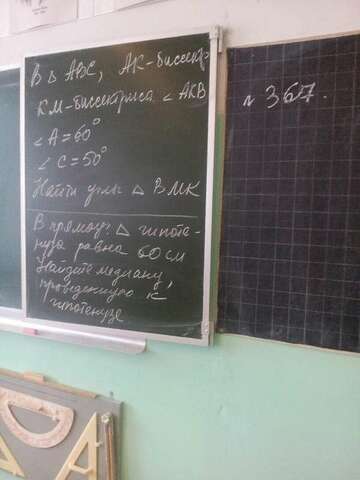 В △ ABC, AK-биссектр
KM-биссектриса ∠ AKB
∠ A = 60°
∠ C = 50°
Найти углы △ BMK
В прямоуг. △ гипоте-
нуза равна 60 см
Найдите медиану,
проведенную к
гипотенузе
№ 367.